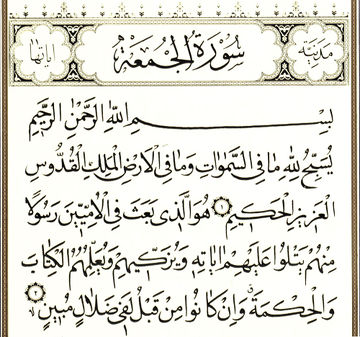 مدنية سورة الجمعة اياتها
بِسْمِ اللهِ الرَّحْمٰنِ الرَّحِيمِ
يُسَبِّحُ لِلهِ مَا فِي السَّمٰوَاتِ وَمَا فِي الْاَرْضِ الْمَلِكِ الْقُدُّوسِ
الْعَزِيزِ الْحَكِيمِ ١ هُوَ الَّذِي بَعَثَ فِي الْاُمِّيِّنَ رَسُولًا
مِنْهُمْ يَتْلُوا عَلَيْهِمْ اٰيَاتِهِ وَيُزَكِّيهِمْ وَيُعَلِّمُهُمُ الْكِتَابَ
وَالْحِكْمَةَ وَاِنْ كَانُوا مِنْ قَبْلُ لَفِي ضَلَالٍ مُبِينٍ ٢